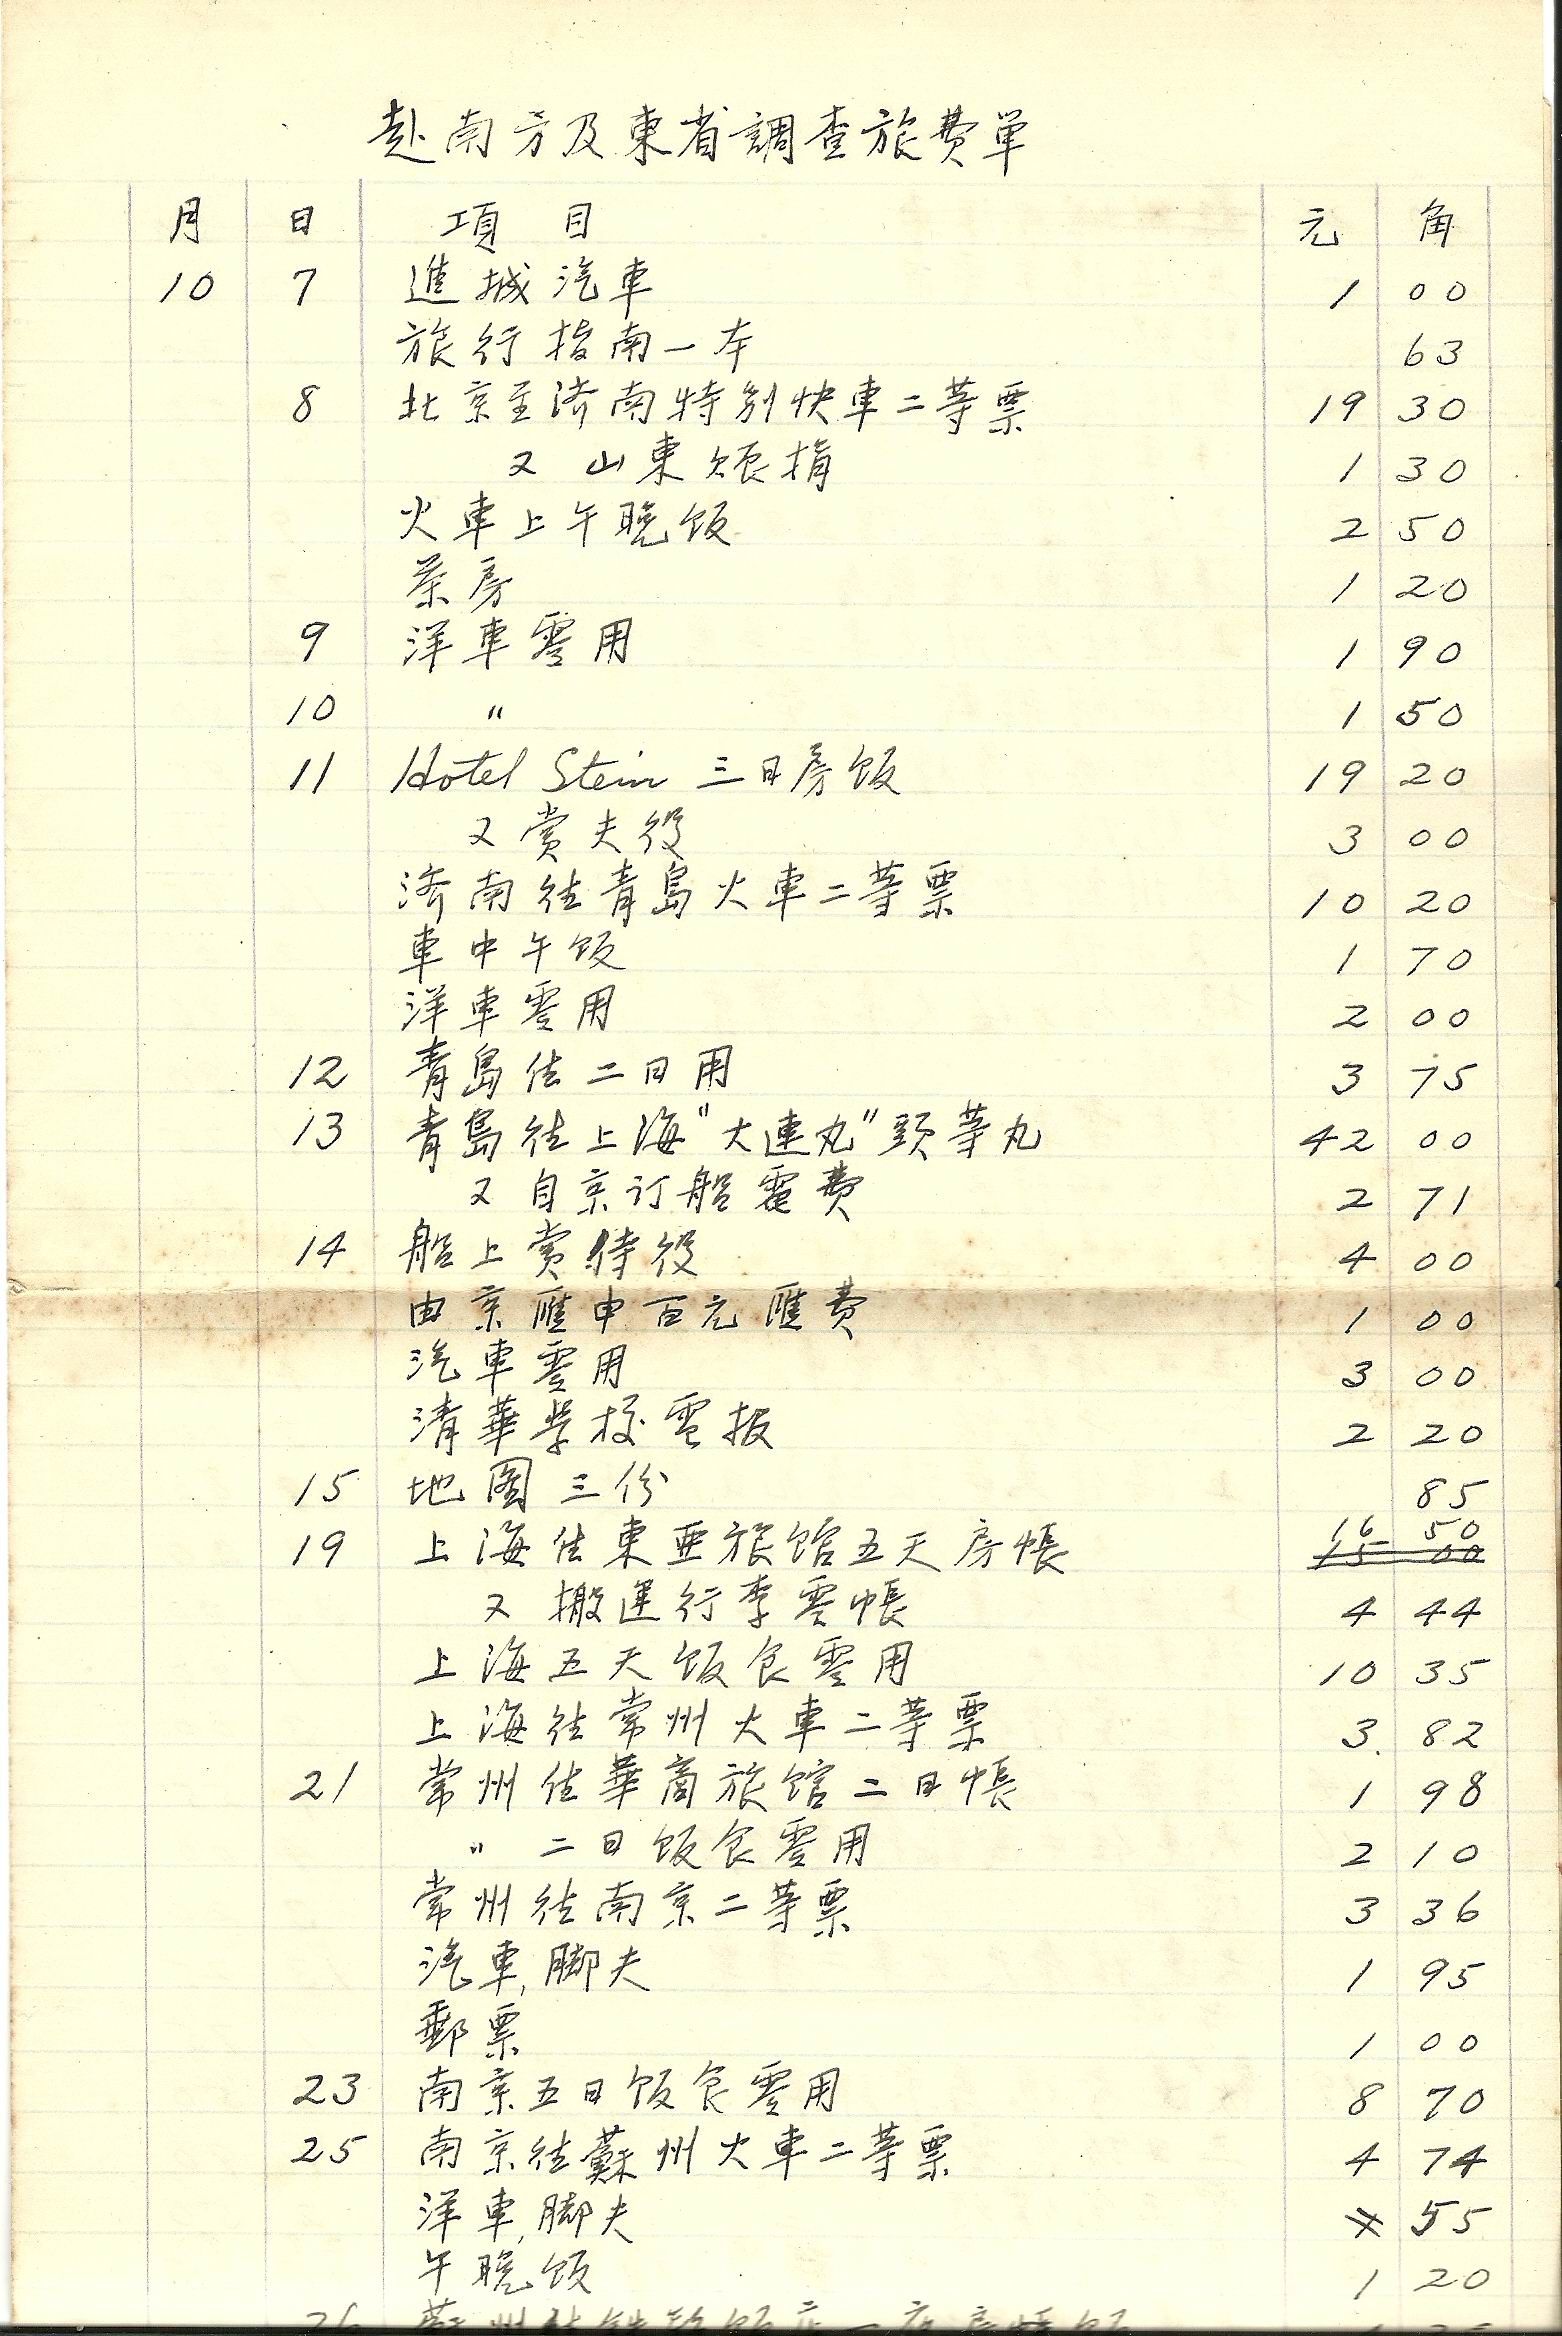 赴南方及東省調查旅費单
月 日 項目 元 角
10 7 進城汽車 1 00
旅行指南一本 63
8 北京至济南特别快車二等票 19 30
又 山東赈捐 1 30
火車上午晚饭 2 50
茶房 1 20
9 洋車零用 1 90
10 〃 1 50
11 Hotel Stein 三日房饭 19 20
又賞夫役 3 00
济南往青島火車二等票 10 20
車中午饭 1 70
洋車零用 2 00
12 青島住二日用 3 75
13 青島往上海"大連丸"頭等丸 42 00
又自京订船電費 2 71
14 船上賞侍役 4 00
由京匯申百元匯費 1 00
汽車零用 3 00
清華学校電报 2 20
15 地图三份 85
19 上海住東亜旅馆五天房帳 16 50
15 00
又 搬運行李零帳 4 44
上海五天饭食零用 10 35
上海往常州火車二等票 3. 82
21 常州住華商旅馆二日帳 1 98
〃 二日饭食零用 2 10
常州往南京二等票 3 36
汽車,脚夫 1 95
郵票 1 00
23 南京五日饭食零用 8 70
25 南京往蘇州火車二等票 4 74
洋車,脚夫 55
午晚饭 1 20